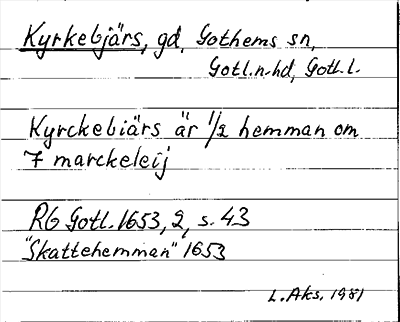 Kyrkebjärs, gd, Gothems sn,
Gotl.n.hd, Gotl.l.
Kyrckebiärs är 1/2 hemman om
7 marckeleij
RG Gotl. 1653, 2, s. 43
"Skattehemman" 1653
L. Aks, 1981